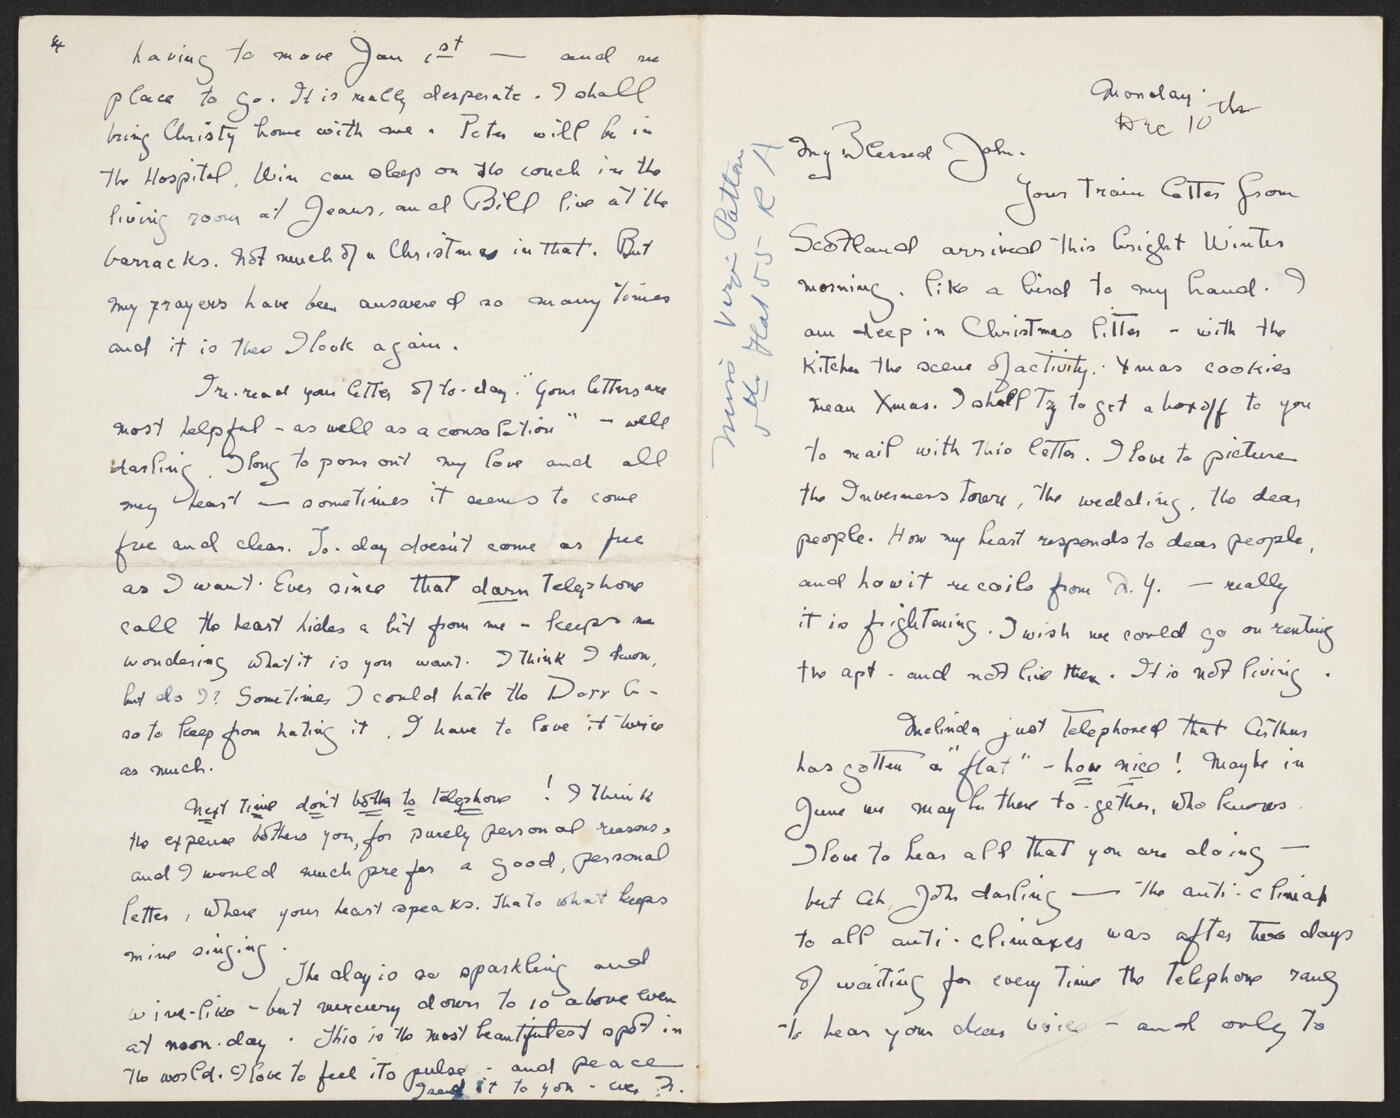 Monday
Dec 10th
My Blessed John.
Your train letter from
Scotland arrived this bright Winter
morning, like a bird to my hand. I
am deep in Christmas litter - with the
Kitchen the scene of activity. Xmas cookies
mean Xmas. I shall try to get a box off to you
to mail with this letter. I love to picture
the Inverness Town, the wedding, the dear
people. How my heart responds to dear people,
and how it recoils from N.Y. — really
it is frightening. I wish we could go on renting
the apt - and not live there. It is not living.
Melinda just telephoned that Arthur
has gotten a "flat" - how nice! Maybe in
June we may be there to-gether, who knows.
I love to hear all that you are doing —
but Ah, John darling — the anti-climax
to all anti-climaxes was after two days
of waiting for every time the telephone rang
to hear your dear voice - and only to
Miss Virgi Patton
5th Flat 55 - R A
4
having to move Jan 1st — and no
place to go. It is really desperate. I shall
bring Christy home with me. Peter will be in
the Hospital, Win can sleep on the couch in the
living room at Jeans, and Bill live at the
barracks. Not much of a Christmas in that. But
my prayers have been answered so many times
and it is then I look again.
I re-read your letter of to-day. "Your letters are
most helpful - as well as a consolation" - well
darling, I long to pour out my love and all
my heart — sometimes it seems to come
free and clear. To-day doesn't come as free
as I want. Ever since that darn telephone
call the heart hides a bit from me - keeps me
wondering what it is you want. I think I know,
but do I? Sometimes I could hate the Dorr G-
so to keep from hating it, I have to love it twice
as much.
Next time don't bother to telephone! I think
the expense bothers you, for purely personal reasons,
and I would much prefer a good, personal
letter, where your heart speaks. Thats what keeps
mine singing.
The day is so sparkling and
wine-like - but mercury down to 10 above even
at noon-day. This is the most beautifulest spot in
the world. I love to feel its pulse - and peace
I send it to you - ever